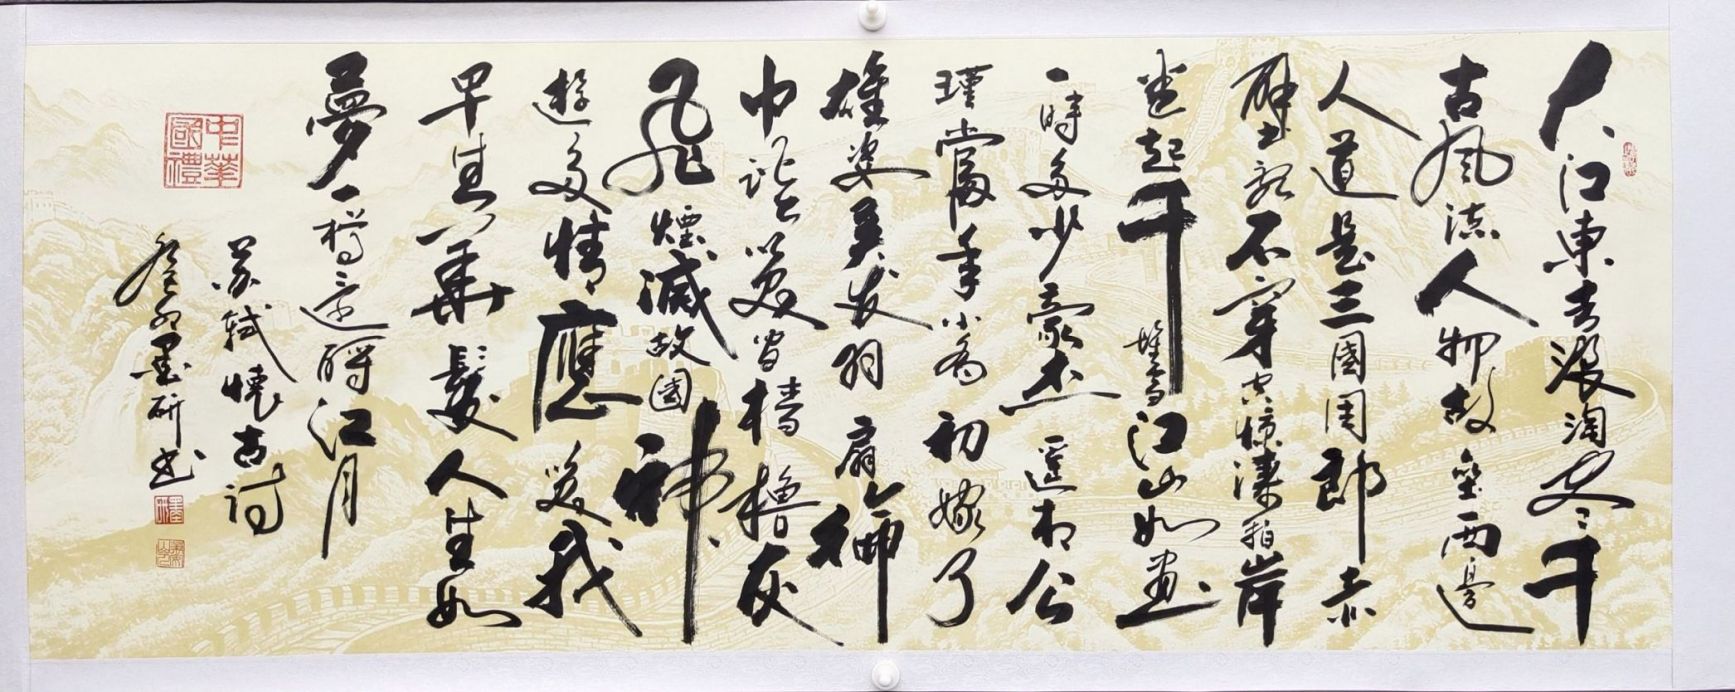 大江東去浪淘尽千
古風流人物故壘西邊
人道是三國周郎赤
壁乱石穿空惊濤拍岸
卷起千堆雪江山如畫
一時多少豪杰遥想公
瑾當年小喬初嫁了
雄姿英发羽扇綸
巾談笑間檣櫓灰
飛煙滅故國神
遊多情應笑我
早生華髮人生如
夢一樽還酹江月
蘇軾懷古詩
墨研书
中華國禮